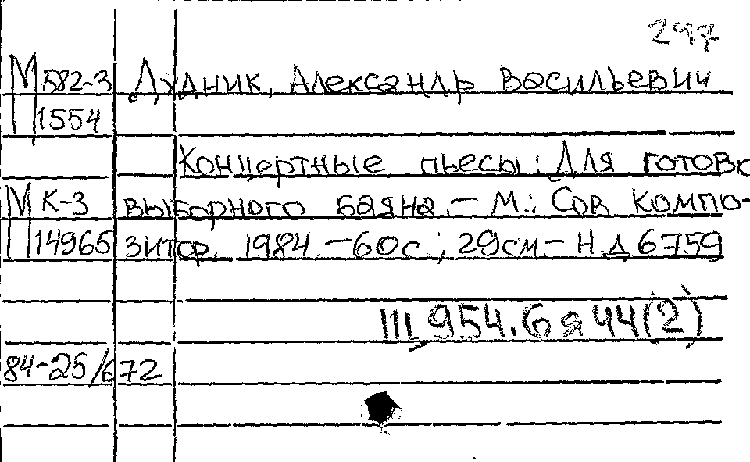 297
М 582-3 Дудник, Александр Васильевич
П 1554
Концертные пьесы: Для готово
М К-3 выборного баяна. – М.: Сов. компо-
П 14965 зитор, 1984. – 60с.; 29см – Н.д 6759
Щ 954.6 я 44(2)
84-25/672